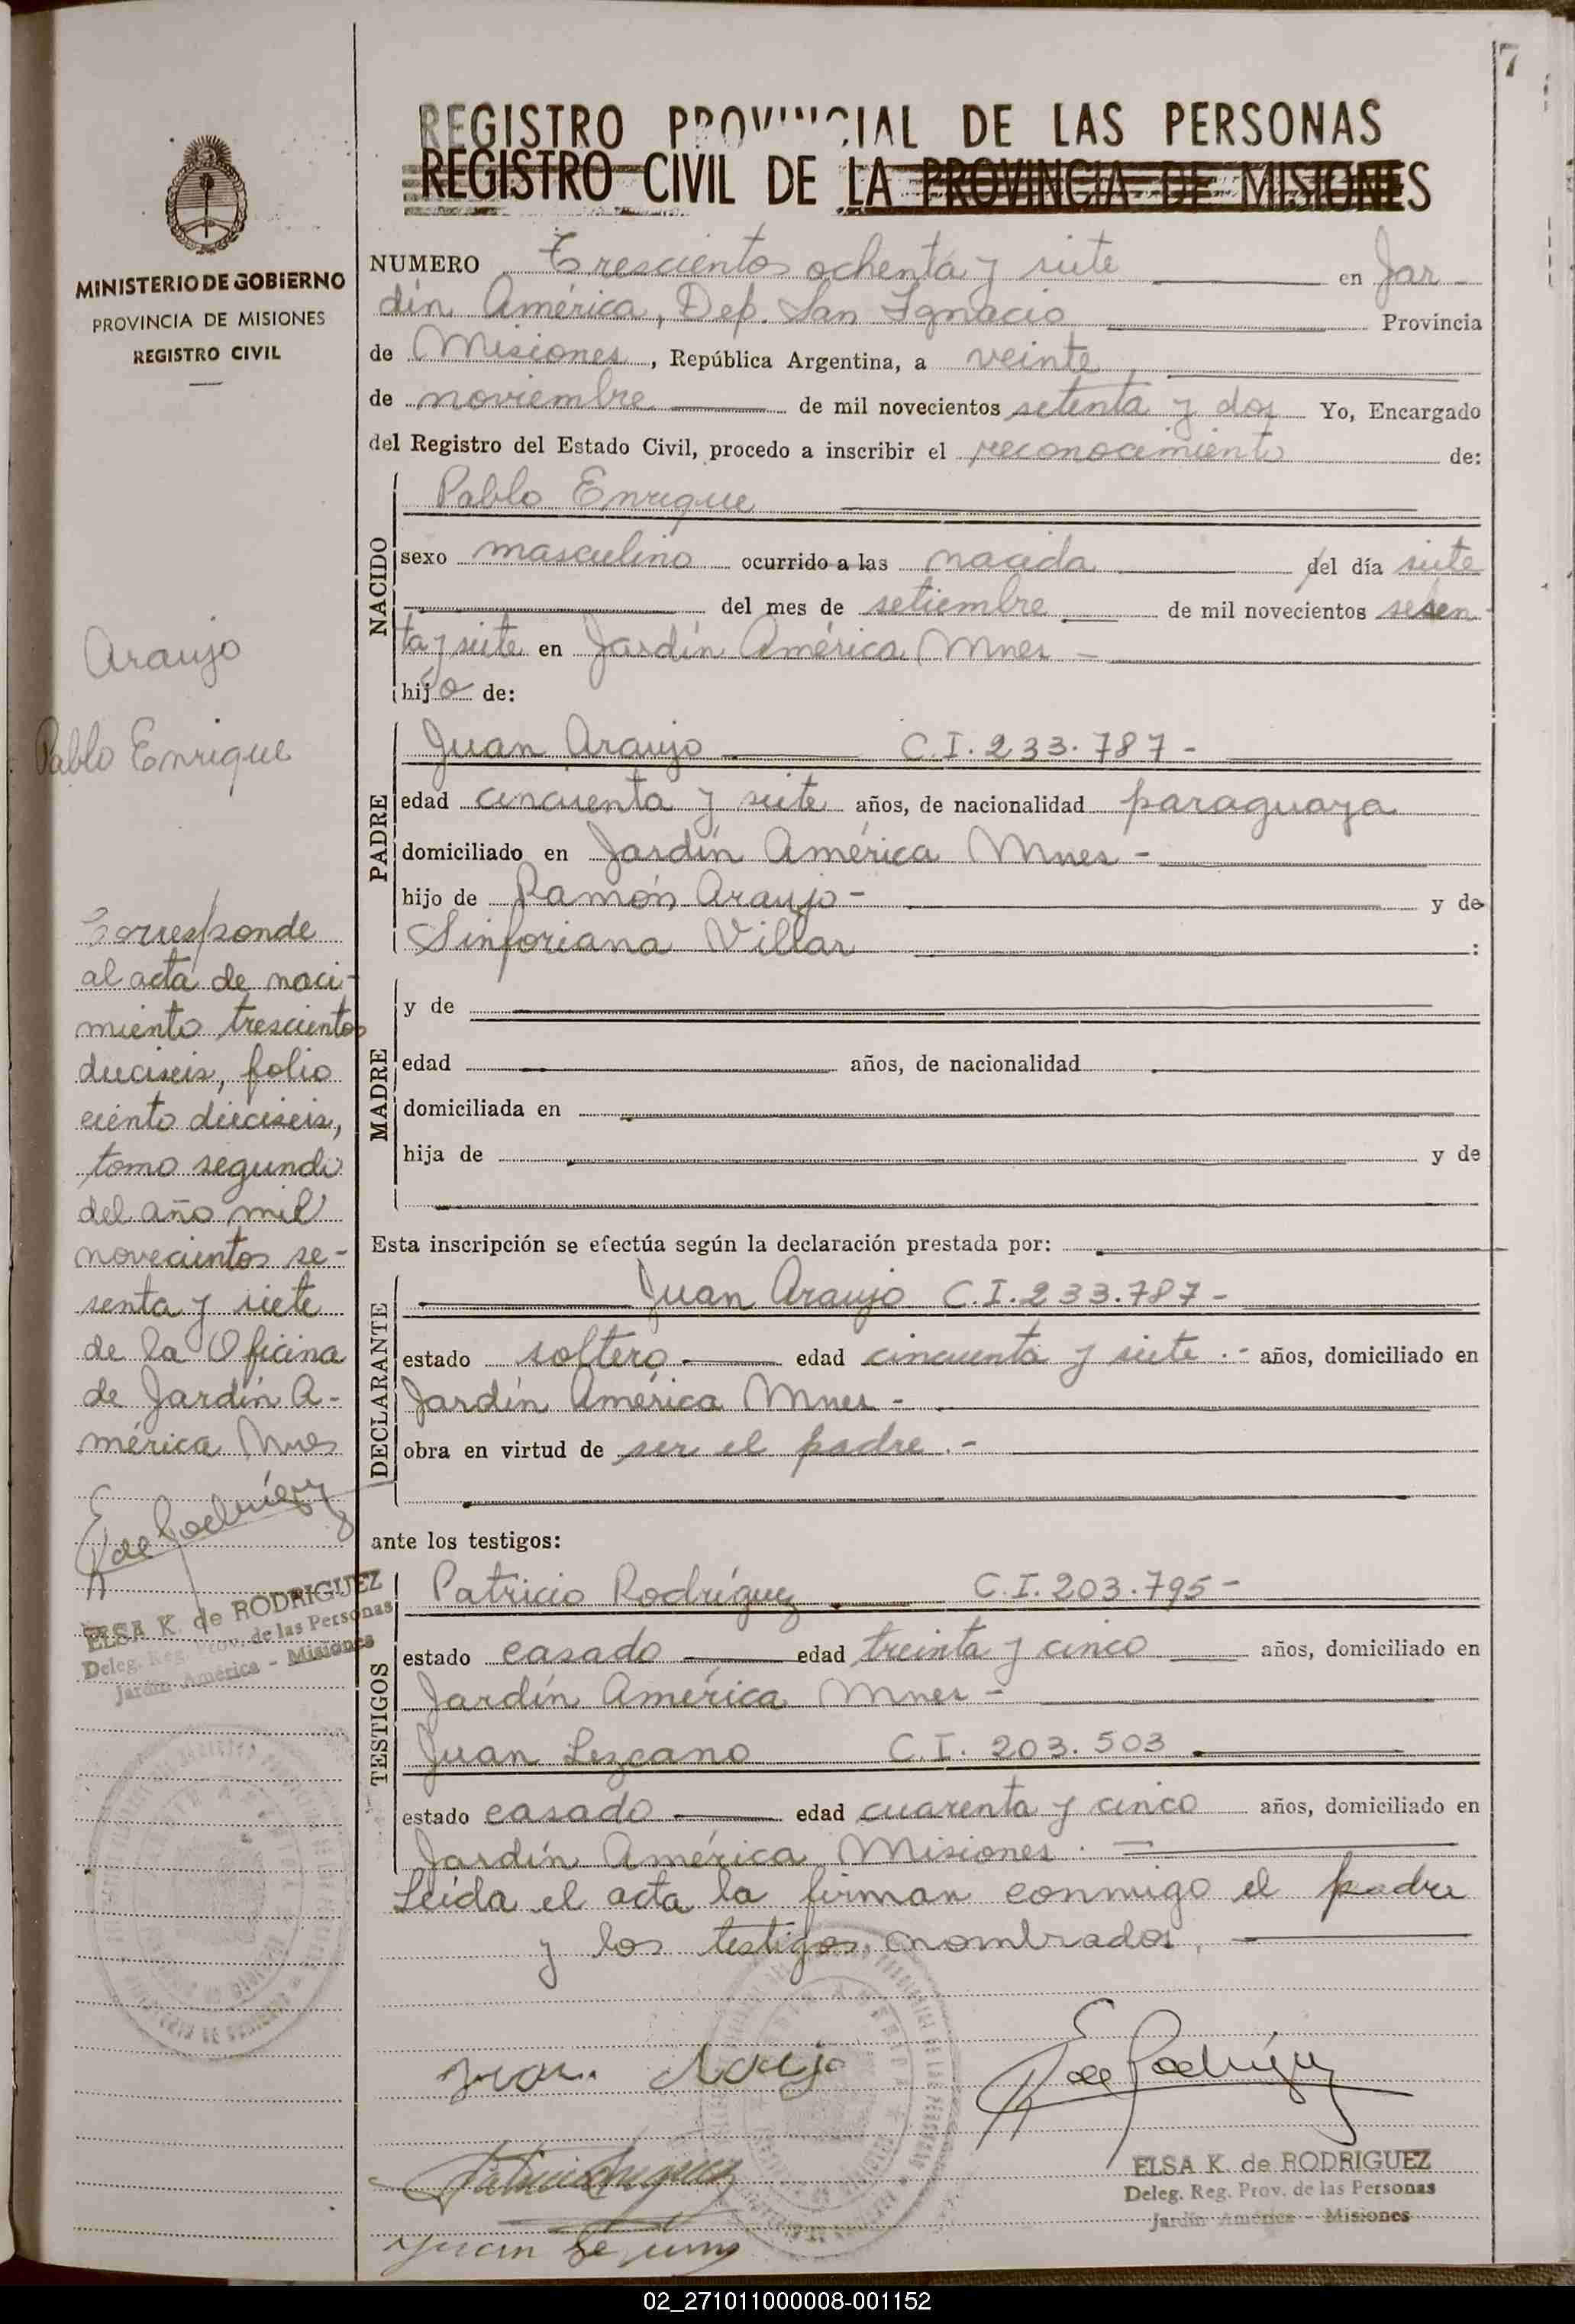 7
REGISTRO PROVINCIAL DE LAS PERSONAS
REGISTRO CIVIL DE LA PROVINCIA DE MISIONES
MINISTERIO DE GOBIERNO
PROVINCIA DE MISIONES
REGISTRO CIVIL
Araujo
Pablo Enrique
Corresponde
al acta de naci-
miento trescientos
dieciseis, folio
ciento dieciseis,
tomo segundo
del año mil
novecientos se-
senta y siete
de la Oficina
de Jardín A-
mérica Mnes
E K de Rodríguez
ELSA K. de RODRIGUEZ
Deleg. Reg. Prov. de las Personas
Jardín América - Misiones
NUMERO Trescientos ochenta y siete en Jar-
dín América, Dep. San Ignacio Provincia
de Misiones, República Argentina, a veinte
de noviembre de mil novecientos setenta y dos Yo, Encargado
del Registro del Estado Civil, procedo a inscribir el reconocimiento de:
NACIDO
Pablo Enrique
sexo masculino ocurrido a las nacido del día siete
del mes de setiembre de mil novecientos sesen-
ta y siete en Jardín América Mnes -
hijo de:
PADRE
Juan Araujo C.I. 233.787-
edad cincuenta y siete años, de nacionalidad paraguaya
domiciliado en Jardín América Mnes -
hijo de Ramón Araujo - y de
Sinforiana Villar :
MADRE
y de
edad años, de nacionalidad
domiciliada en
hija de y de
Esta inscripción se efectúa según la declaración prestada por:
DECLARANTE
Juan Araujo C.I. 233.787-
estado soltero.- edad cincuenta y siete.- años, domiciliado en
Jardín América Mnes -
obra en virtud de ser el padre.-
ante los testigos:
TESTIGOS
Patricio Rodríguez C.I. 203.795-
estado casado edad treinta y cinco años, domiciliado en
Jardín América Mnes -
Juan Lezcano C.I. 203.503
estado casado edad cuarenta y cinco años, domiciliado en
Jardín América Misiones.
Leída el acta la firman conmigo el padre
y los testigos nombrados.
Juan Araujo
E K de Rodríguez
ELSA K. de RODRIGUEZ
Deleg. Reg. Prov. de las Personas
Jardín América - Misiones
02_271011000008-001152